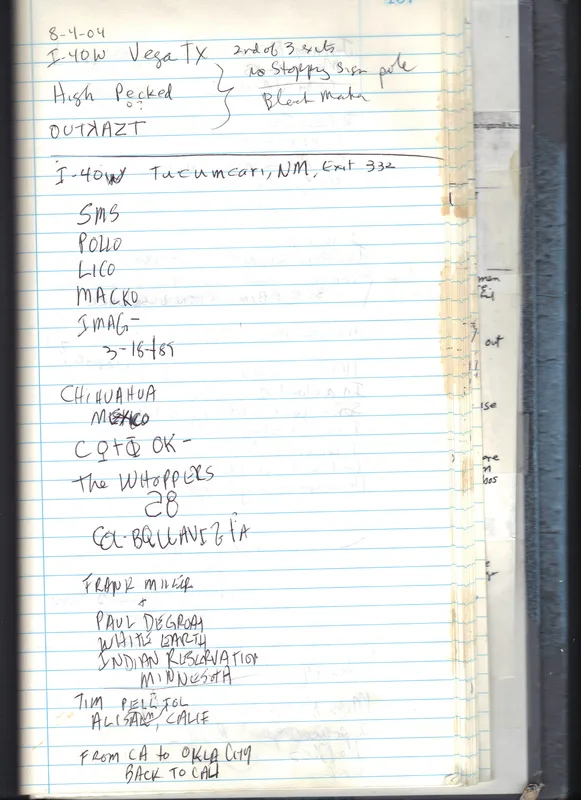 8-4-04
I-40W Vega TX 2nd of 3 exits
no Stopping sign pole
High Pecked
Black
OUTKAZT
I-40W Tucumcari, NM, Exit 332
SMS
POLLO
LICO
MACKO
IMAG-
3-18-89
CHIHUAHUA
MEXICO
OK-
The WHOPPERS
28
FRANK MILLER
+
PAUL DEGROAT
WHITE EARTH
INDIAN RESERVATION
MINNESOTA
TIM
CALIF
FROM CA to OKLA CITY
BACK TO CALI